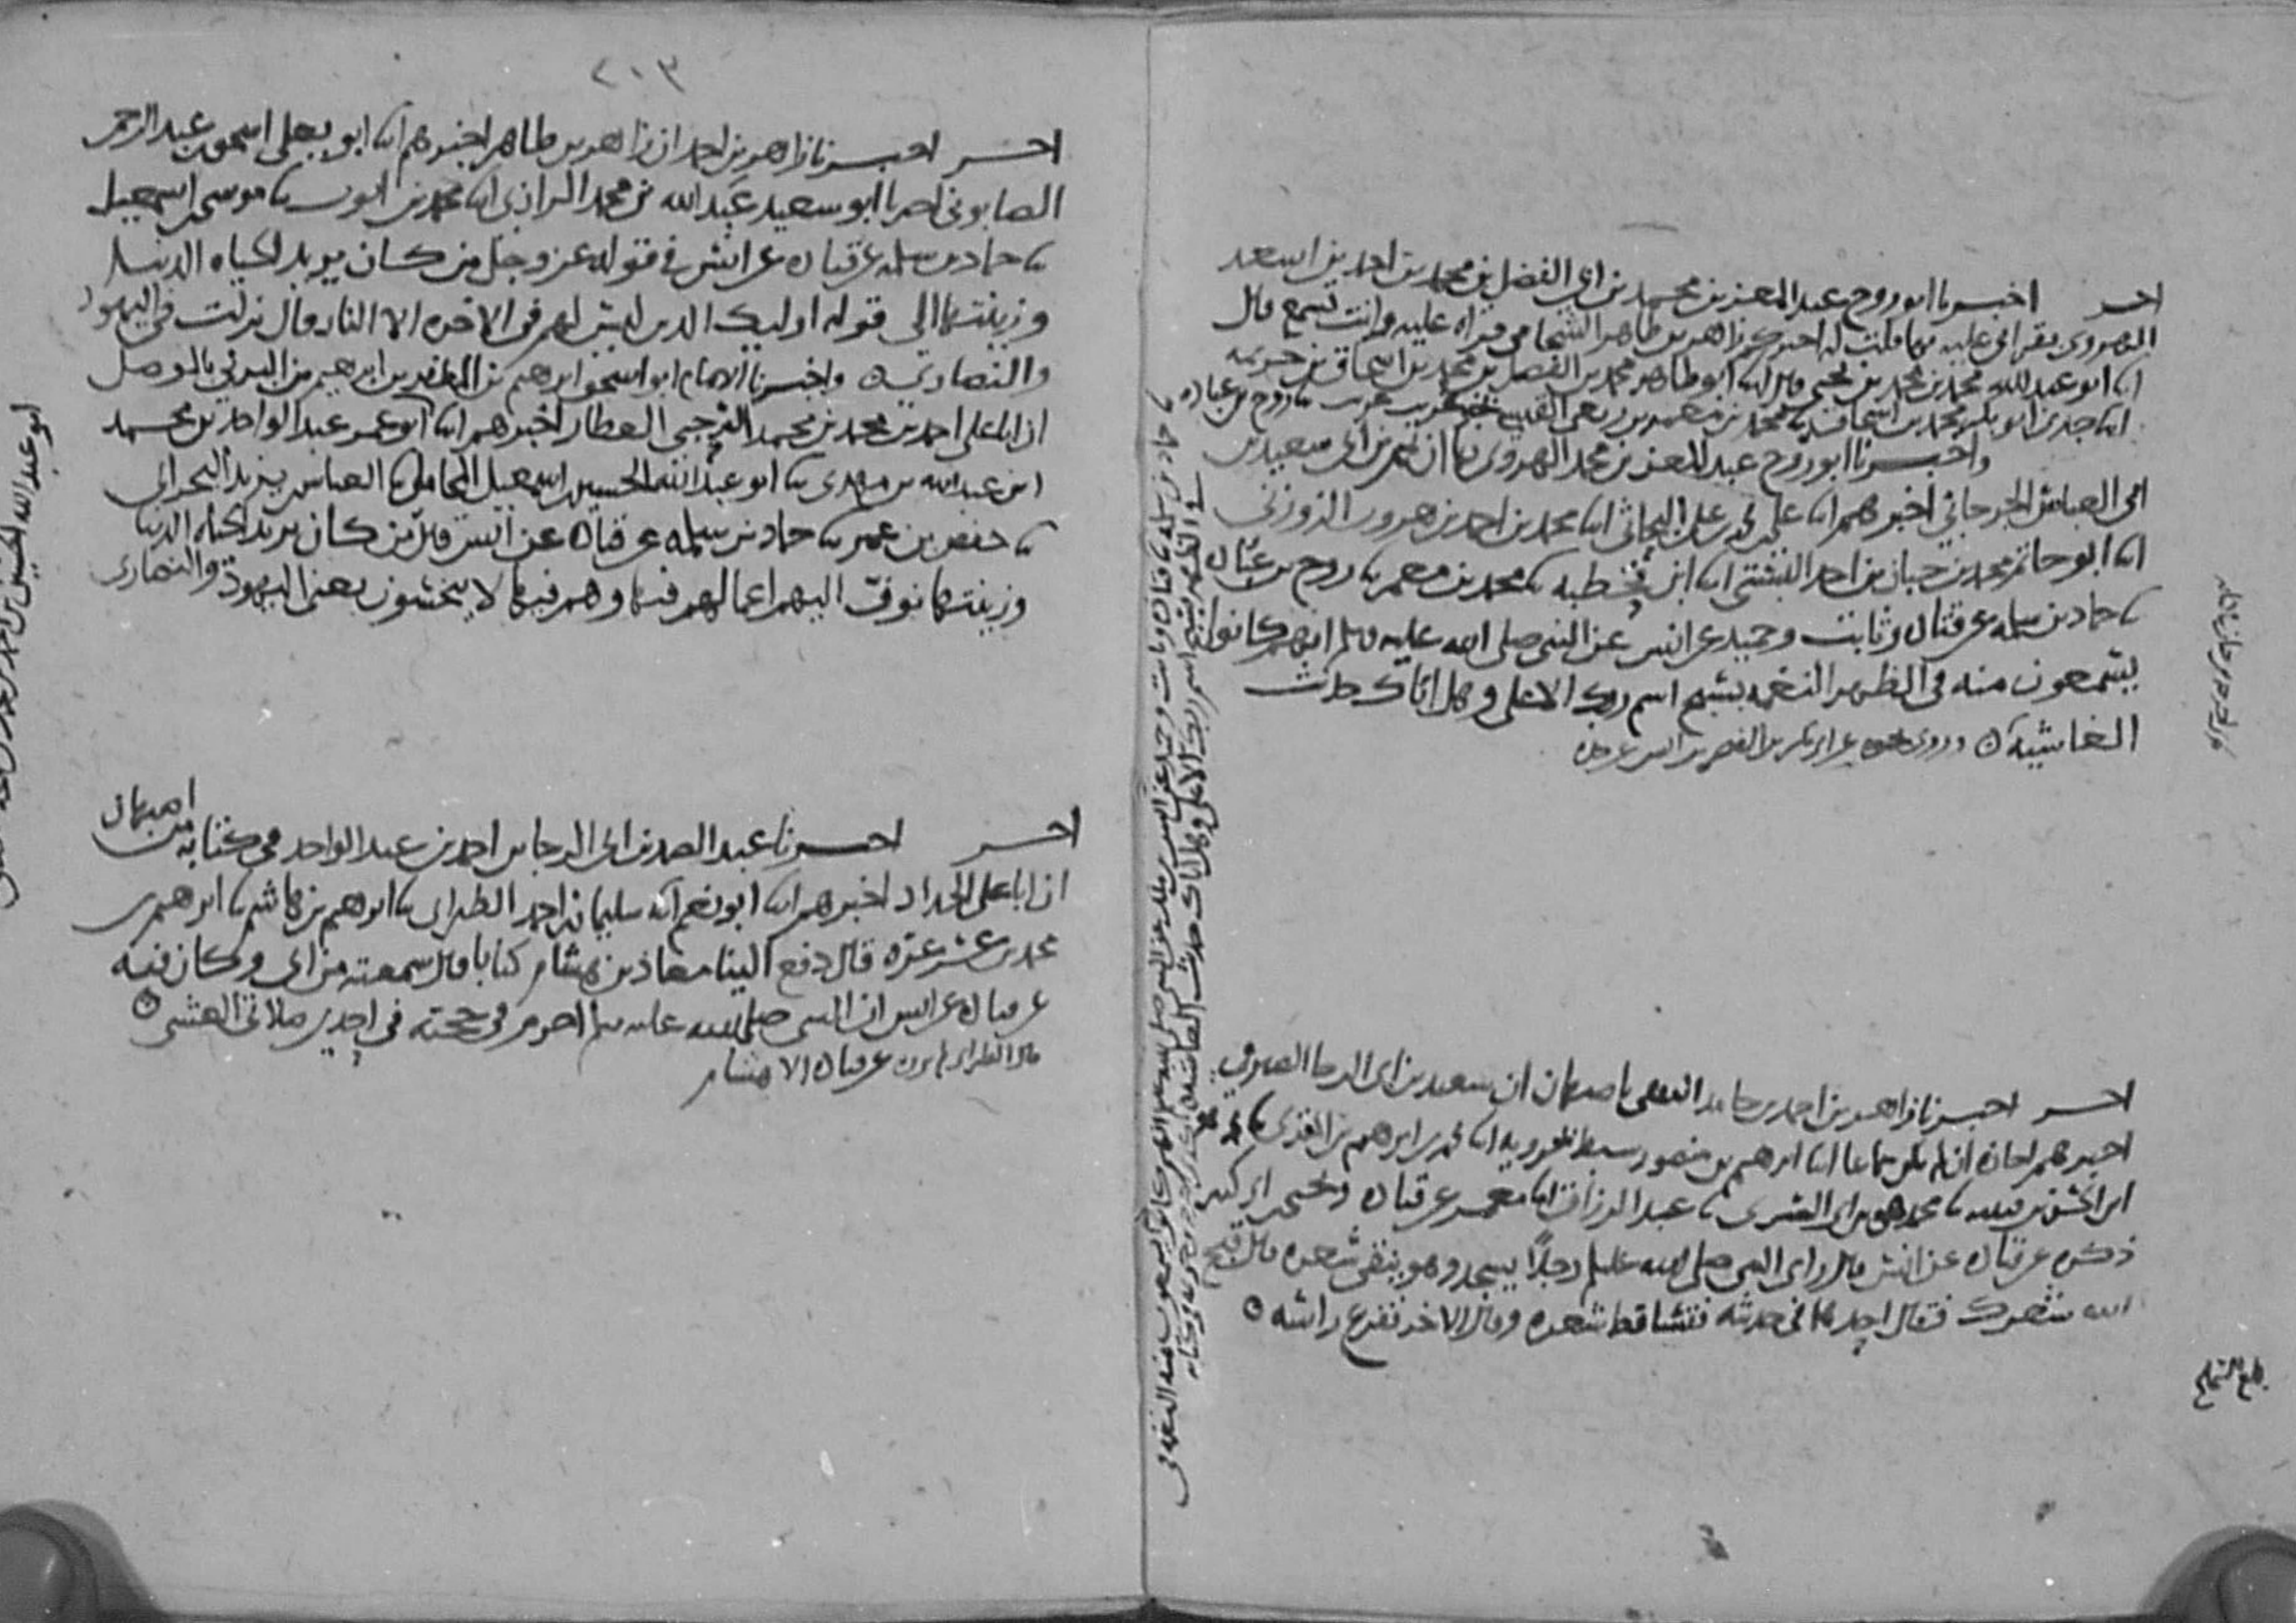 اخر اخبرنا ابو روح عبد المعز بن محمد بن ابي الفضل بن محمد بن احمد بن اسعد
الهروي بقراتي عليه بها قلت له اخبركم زاهر بن طاهر الشحامي قراه عليه وانت تسمع قال
انا ابو عبد الله محمد بن محمد بن يحيى قال انا ابو طاهر محمد بن الفضل بن محمد بن اسحاق بن خزيمه
انا جدي ابو بكر محمد بن اسحاق نا محمد بن معمر بن ربعي القيسي غريب غريب نا روح بن عباده
واخبرنا ابو روح عبد المعز بن محمد الهروي بها ان تميم بن ابي سعيد بن
ابي العباس الجرجاني اخبرهم انا علي بن محمد بن علي البحاثي انا محمد بن احمد بن هرون الزوزني
انا ابو حاتم محمد بن حبان بن احمد البستي انا ابن قحطبه نا محمد بن معمر نا روح بن عباده
نا حماد بن سلمه عن قتاده وثابت وحميد عن انس عن النبي صلى الله عليه وسلم انهم كانوا
يسمعون منه في الظهر النغمه بسبح اسم ربك الاعلى وهل اتاك حديث
الغاشيه وروي نحوه عن ابي بكر بن النضر بن انس عن جده
اخر اخبرنا زاهر بن احمد بن حامد الثقفي باصبهان ان سعيد بن ابي الرجا الصيرفي
اخبرهم اجازه ان لم يكن سماعا انا ابرهيم بن منصور سبط بحرويه انا محمد بن ابرهيم بن المقري نا محمد
ابن الحسن بن قتيبه نا محمد بن ابي السري نا عبد الرزاق انا معمر عن قتاده ويحيى بن ابي كثير
ذكره عن قتاده عن انس قال راى النبي صلى الله عليه وسلم رجلا يسجد وهو يتقي شعره قال قبح
الله شعرك فقال احدهما في حديثه فتساقط شعره وقال الاخر فقرع راسه
بلغ السماع
٢٠٣
اخر اخبرنا زاهر بن احمد ان زاهر بن طاهر اخبرهم انا ابو يعلى اسحق بن عبد الرحمن
الصابوني اخبرنا ابو سعيد عبد الله بن محمد الرازي انا محمد بن ايوب نا موسى بن اسمعيل
نا حماد بن سلمه عن قتاده عن انس في قوله عز وجل من كان يريد الحياه الدنيا
وزينتها الى قوله اوليك الذين ليس لهم في الاخره الا النار قال نزلت في اليهود
والنصارى واخبرنا الامام ابو اسحق ابرهيم بن المظفر بن ابرهيم بن البرني بالموصل
ان ابا علي احمد بن محمد بن محمد الرحبي العطار اخبرهم انا ابو عمر عبد الواحد بن محمد
ابن عبد الله بن مهدي نا ابو عبد الله الحسين بن اسمعيل المحاملي نا العباس بن يزيد البحراني
نا حفص بن عمر نا حماد بن سلمه عن قتاده عن انس قال من كان يريد الحياه الدنيا
وزينتها نوف اليهم اعمالهم فيها وهم فيها لا يبخسون يعني اليهود والنصارى
اخر اخبرنا عبد الصمد بن ابي الرجا بن احمد بن عبد الواحد في كتابه من اصبهان
ان ابا علي الحداد اخبرهم انا ابو نعيم انا سليمان بن احمد الطبراني نا ابرهيم بن هاشم نا ابرهيم بن
محمد بن عرعره قال دفع الينا معاذ بن هشام كتابا قال سمعته من ابي وكان فيه
عن قتاده عن انس ان النبي صلى الله عليه وسلم احرم في حجته في احدى صلاتي العشي
قال الطبراني لم يروه عن قتاده الا هشام